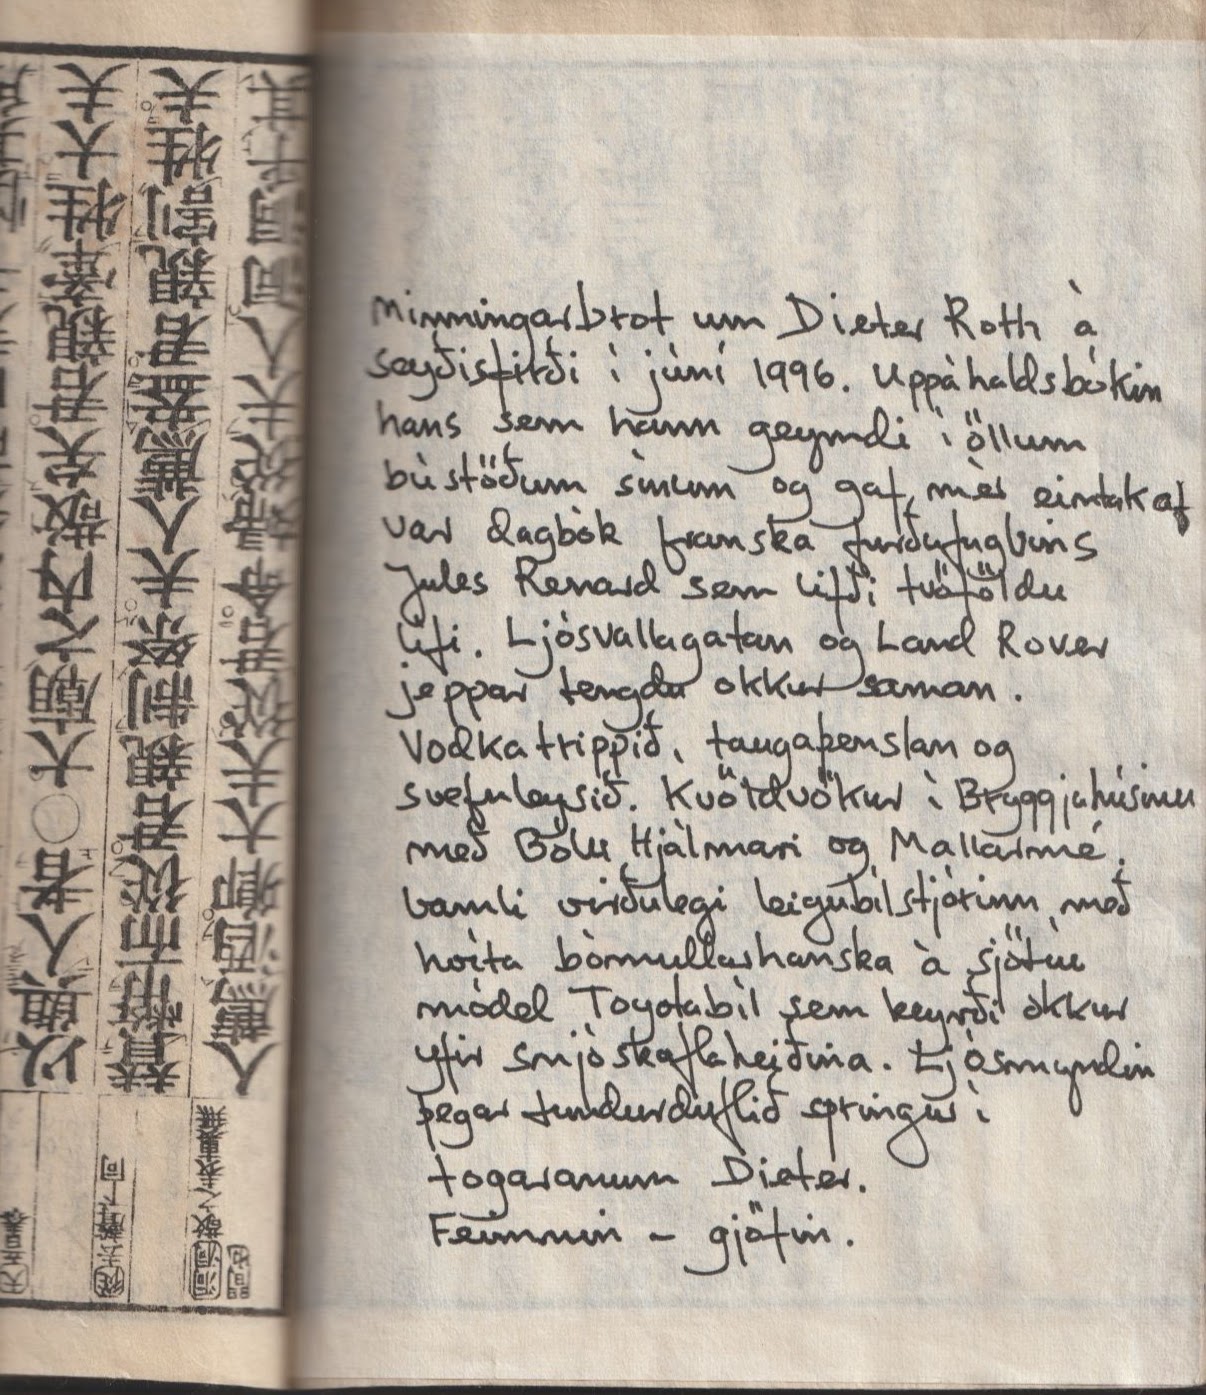 以觀人者○大廟之内敬矣君親牽牲大夫
贊幣而從君親制祭夫人薦盎君親割牲夫
人薦酒卿大夫從君命婦從夫人洞洞乎其
Minningarbrot um Dieter Roth á
Seyðisfirði í júní 1996. Uppáhaldsbókin
hans sem hann geymdi í öllum
bústöðum sínum og gaf mér eintak af
var dagbók franska furðufuglsins
Jules Renard sem lifði tvöföldu
lífi. Ljósvallagatan og Land Rover
jeppar tengdu okkur saman.
Vodkatrippið, taugaþenslan og
svefnleysið. Kvöldvökur í Bryggjuhúsinu
með Bólu Hjálmari og Mallarmé.
Gamli virðulegi leigubílstjórinn með
hvíta bómullarhanska á sjötíu
módel Toyotabíl sem keyrði okkur
yfir snjóskaflaheiðina. Ljósmyndin
þegar tundurduflið springur í
togaranum Dieter.
Feimnin – gjöfin.